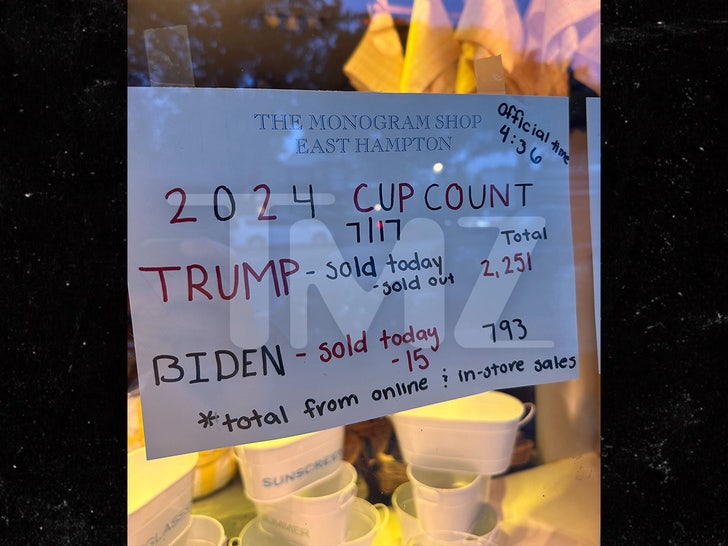 THE MONOGRAM SHOP
EAST HAMPTON
Official time
4:36
2024 CUP COUNT
7/17
Total
TRUMP - sold today 2,251
- sold out
BIDEN - sold today 793
- 15
* total from online & in-store sales
TMZ
SUNSCREEN